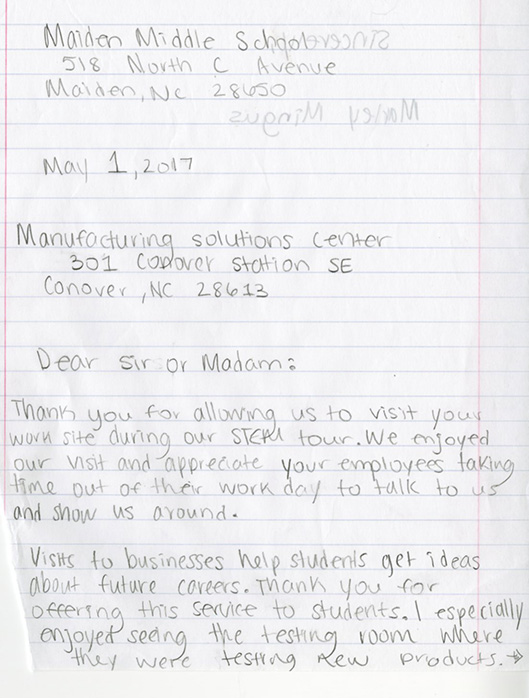 Maiden Middle School
518 North C Avenue
Maiden, NC 28650
May 1, 2017
Manufacturing solutions center
301 Conover station SE
Conover, NC 28613
Dear sir or Madam:
Thank you for allowing us to visit your
work site during our STEAM tour. We enjoyed
our visit and appreciate your employees taking
time out of their work day to talk to us
and show us around.
Visits to businesses help students get ideas
about future careers. Thank you for
offering this service to students. I especially
enjoyed seeing the testing room where
they were testing new products. →